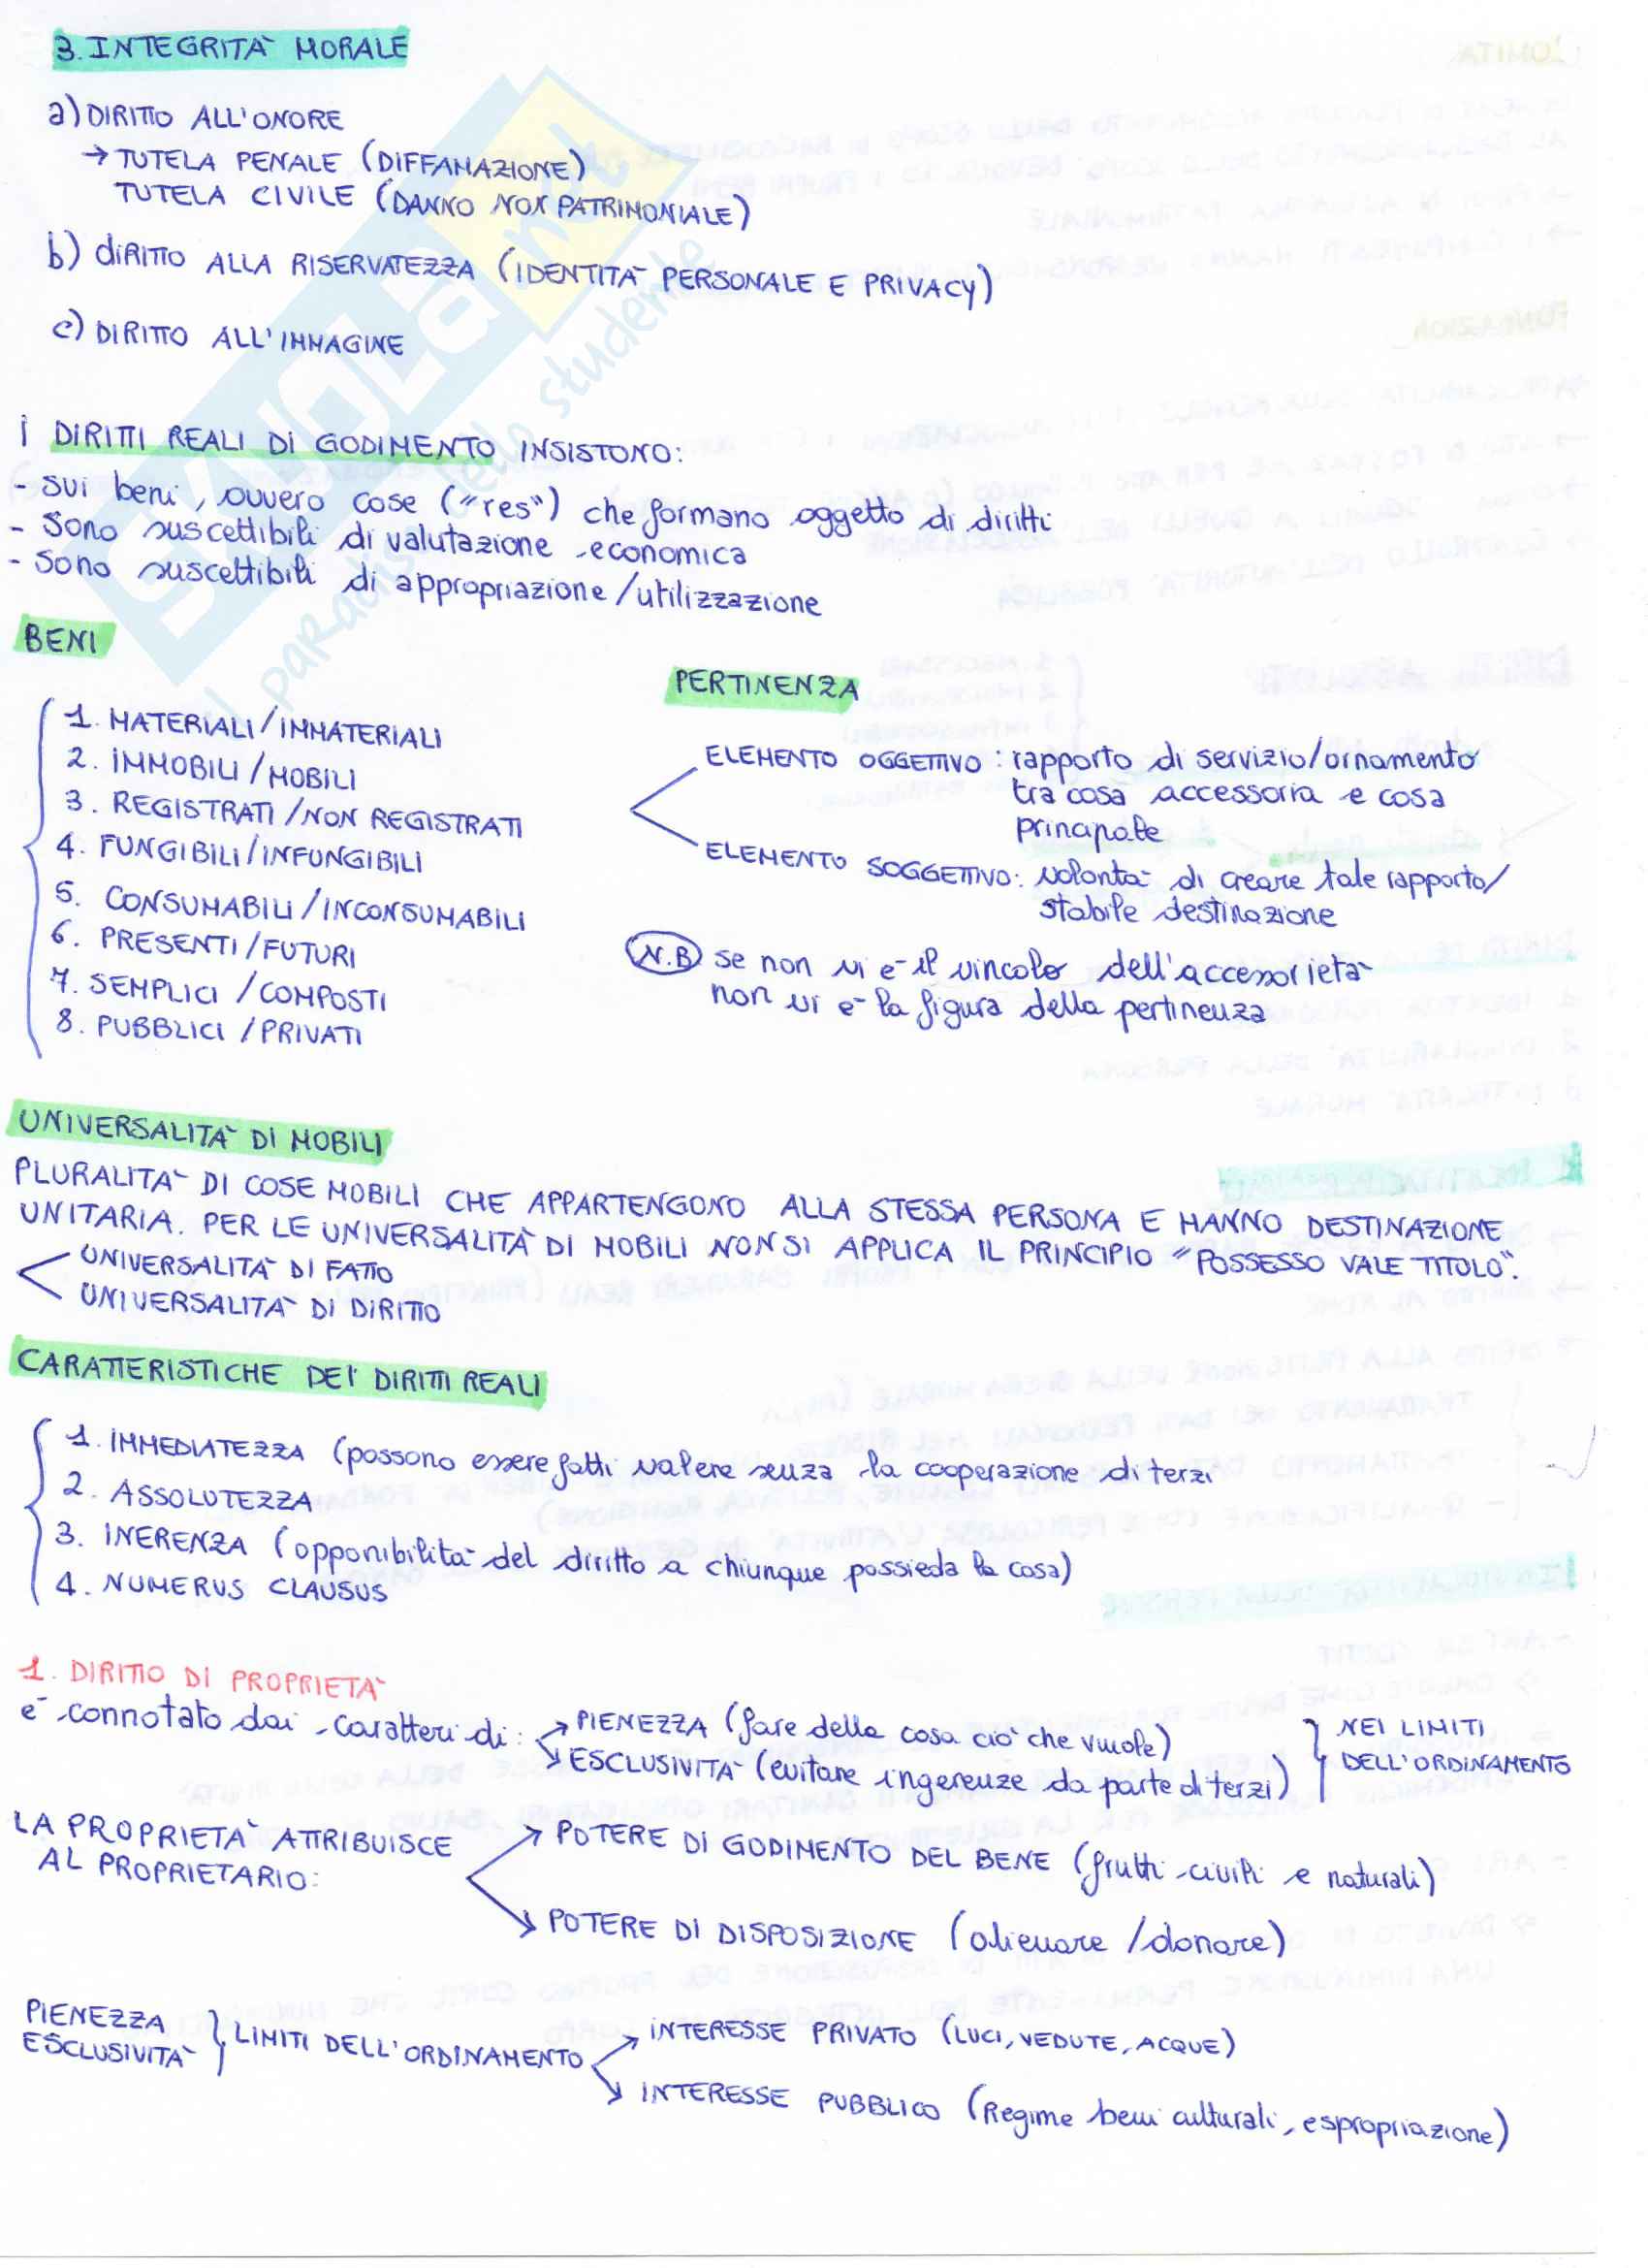 3. INTEGRITÀ MORALE
a) DIRITTO ALL'ONORE
→ TUTELA PENALE (DIFFAMAZIONE)
TUTELA CIVILE (DANNO NON PATRIMONIALE)
b) DIRITTO ALLA RISERVATEZZA (IDENTITÀ PERSONALE E PRIVACY)
c) DIRITTO ALL'IMMAGINE
SKUOLA.net
il paradiso dello studente
I DIRITTI REALI DI GODIMENTO INSISTONO:
- sui beni, ovvero cose ("res") che formano oggetto di diritti
- Sono suscettibili di valutazione economica
- Sono suscettibili di appropriazione/utilizzazione
BENI
1. MATERIALI/IMMATERIALI
2. IMMOBILI/MOBILI
3. REGISTRATI/NON REGISTRATI
4. FUNGIBILI/INFUNGIBILI
5. CONSUMABILI/INCONSUMABILI
6. PRESENTI/FUTURI
7. SEMPLICI/COMPOSTI
8. PUBBLICI/PRIVATI
PERTINENZA
ELEMENTO OGGETTIVO: rapporto di servizio/ornamento
tra cosa accessoria e cosa
principale
ELEMENTO SOGGETTIVO: volontà di creare tale rapporto/
stabile destinazione
N.B se non vi è il vincolo dell'accessorietà
non vi è la figura della pertinenza
UNIVERSALITÀ DI MOBILI
PLURALITÀ DI COSE MOBILI CHE APPARTENGONO ALLA STESSA PERSONA E HANNO DESTINAZIONE
UNITARIA. PER LE UNIVERSALITÀ DI MOBILI NON SI APPLICA IL PRINCIPIO "POSSESSO VALE TITOLO".
UNIVERSALITÀ DI FATTO
UNIVERSALITÀ DI DIRITTO
CARATTERISTICHE DEI DIRITTI REALI
1. IMMEDIATEZZA (possono essere fatti valere senza la cooperazione di terzi
2. ASSOLUTEZZA
3. INERENZA (opponibilità del diritto a chiunque possieda la cosa)
4. NUMERUS CLAUSUS
1. DIRITTO DI PROPRIETÀ
è connotato dai caratteri di: → PIENEZZA (fare della cosa ciò che vuole)
↘ ESCLUSIVITÀ (evitare ingerenze da parte di terzi)
NEI LIMITI
DELL'ORDINAMENTO
LA PROPRIETÀ ATTRIBUISCE
AL PROPRIETARIO:
POTERE DI GODIMENTO DEL BENE (frutti civili e naturali)
POTERE DI DISPOSIZIONE (alienare/donare)
PIENEZZA
ESCLUSIVITÀ
LIMITI DELL'ORDINAMENTO
INTERESSE PRIVATO (LUCI, VEDUTE, ACQUE)
INTERESSE PUBBLICO (Regime beni culturali, espropriazione)